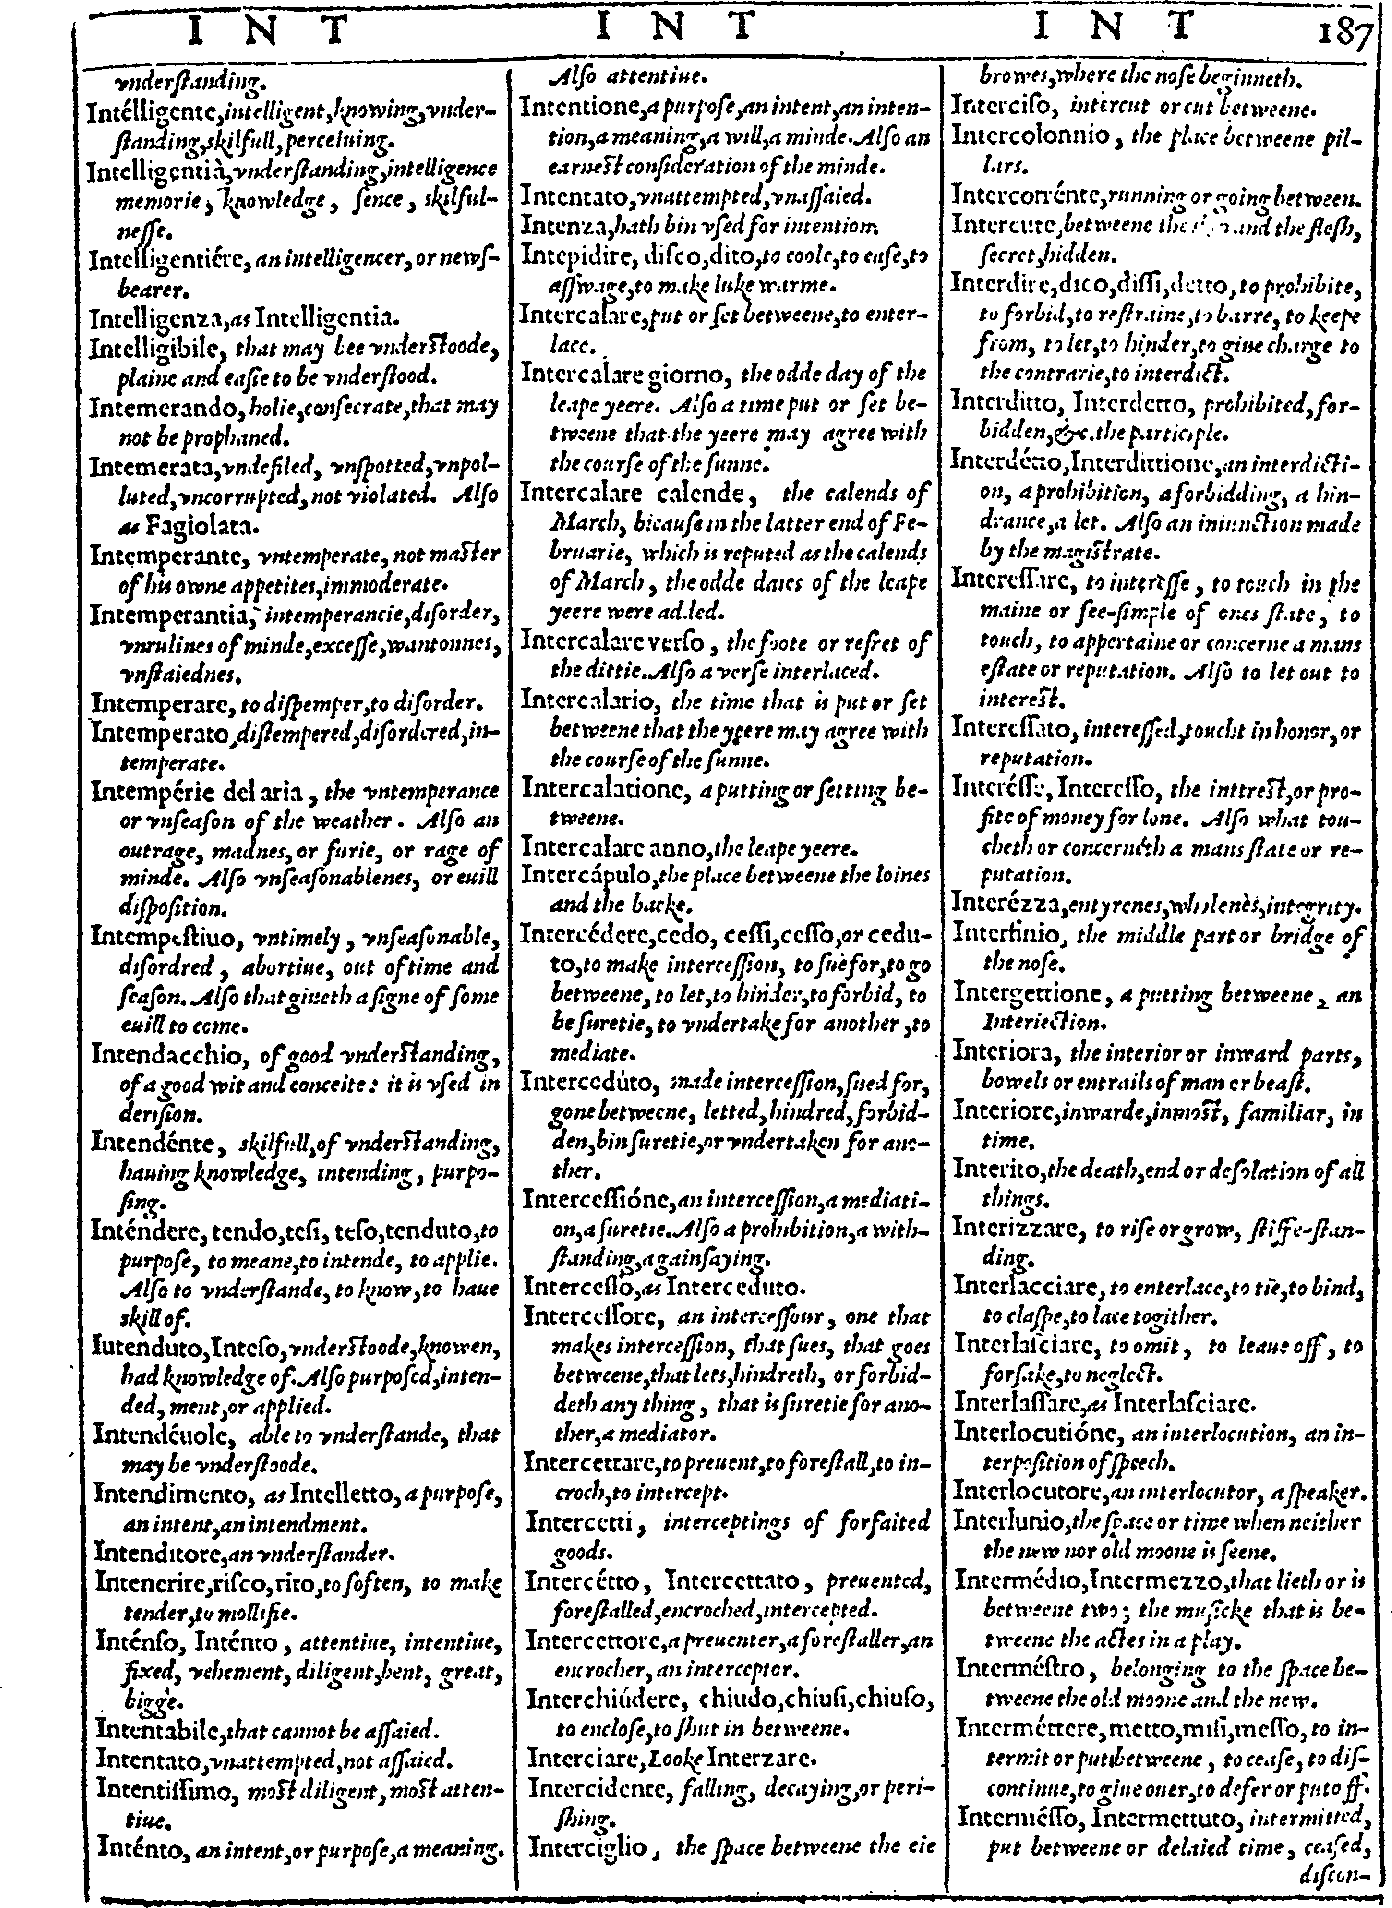 I N T I N T I N T 187
vnderſtanding.
Intélligente,intelligent,knowing,vnder-
ſtanding,skilfull,perceiuing.
Intelligentià,vnderſtanding,intelligence
memorie, knowledge, ſence, skilful-
neſſe.
Intelligentiére, an intelligencer, or newſ-
bearer.
Intelligenza,as Intelligentia.
Intelligibile, that may bee vnderſtoode,
plaine and eaſie to be vnderſtood.
Intemerando, holie,conſecrate,that may
not be prophaned.
Intemerata,vndefiled, vnſpotted,vnpol-
luted,vncorrupted,not violated. Alſo
as Fagiolata.
Intemperante, vntemperate, not maſter
of his owne appetites,immoderate.
Intemperantia, intemperancie,diſorder,
vnrulines of minde,exceſſe,wantonnes,
vnſtaiednes.
Intemperare, to diſpemper,to diſorder.
Intemperato,diſtempered,diſordered,in-
temperate.
Intempérie del aria, the vntemperance
or vnſeaſon of the weather. Alſo an
outrage, madnes, or furie, or rage of
minde. Alſo vnſeaſonablenes, or euill
diſpoſition.
Intempeſtiuo, vntimely, vnſeaſonable,
diſordred, abortiue, out of time and
ſeaſon. Alſo that giueth a ſigne of ſome
euill to come.
Intendacchio, of good vnderſtanding,
of a good wit and conceite: it is vſed in
deriſion.
Intendénte, skilfull,of vnderſtanding,
hauing knowledge, intending, purpo-
ſing.
Inténdere, tendo,teſi, teſo,tenduto,to
purpoſe, to meane,to intende, to applie.
Alſo to vnderſtande, to know, to haue
skill of.
Iutenduto,Inteſo,vnderſtoode,knowen,
had knowledge of.Alſo purpoſed,inten-
ded, ment,or applied.
Intendéuole, able to vnderſtande, that
may be vnderſtoode.
Intendimento, as Intelletto, a purpoſe,
an intent,an intendment.
Intenditore,an vnderſtander.
Intenerire,riſco,rito,to ſoften, to make
tender,to mollifie.
Inténſo, Inténto, attentiue, intentiue,
fixed, vehement, diligent,bent, great,
bigge.
Intentabile,that cannot be aſſaied.
Intentato,vnattempted,not aſſaied.
Intentiſſimo, moſt diligent, moſt atten-
tiue.
Inténto, an intent,or purpoſe,a meaning.
Alſo attentiue.
Intentione,a purpoſe,an intent,an inten-
tion,a meaning,a will,a minde.Alſo an
earneſt conſideration of the minde.
Intentato,vnattempted,vnaſſaied.
Intenza,hath bin vſed for intention.
Intepidire, diſco,dito,to coole,to eaſe,to
aſſwage,to make luke warme.
Intercalare,put or ſet betweene,to enter-
lace.
Intercalare giorno, the odde day of the
leape yeere. Alſo a time put or ſet be-
tweene that the yeere may agree with
the courſe of the ſunne.
Intercalare calende, the calends of
March, bicauſe in the latter end of Fe-
bruarie, which is reputed as the calends
of March, the odde daies of the leape
yeere were added.
Intercalare verſo, the foote or refret of
the dittie.Alſo a verſe interlaced.
Intercalario, the time that is put or ſet
betweene that the yeere may agree with
the courſe of the ſunne.
Intercalatione, a putting or ſetting be-
tweene.
Intercalare anno,the leape yeere.
Intercápulo,the place betweene the loines
and the backe.
Intercédere,cedo, ceſſi,ceſſo,or cedu-
to,to make interceſſion, to ſue for,to go
betweene, to let,to hinder,to forbid, to
be ſuretie, to vndertake for another,to
mediate.
Intercedùto, made interceſſion,ſued for,
gone betweene, letted,hindred,forbid-
den,bin ſuretie,or vndertaken for ano-
ther.
Interceſſióne,an interceſſion,a mediati-
on,a ſuretie.Alſo a prohibition,a with-
ſtanding,a gainſaying.
Interceſſo,as Interceduto.
Interceſſore, an interceſſour, one that
makes interceſſion, that ſues, that goes
betweene,that lets,hindreth, or forbid-
deth any thing, that is ſuretie for ano-
ther,a mediator.
Intercettare,to preuent,to foreſtall,to in-
croch,to intercept.
Intercetti, interceptings of forfaited
goods.
Intercétto, Intercettato, preuented,
foreſtalled,encroched,intercepted.
Intercettore,a preuenter,a foreſtaller,an
encrocher, an interceptor.
Interchiúdere, chiudo,chiuſi,chiuſo,
to encloſe,to ſhut in betweene.
Interciare,Looke Interzare.
Intercidente, falling, decaying,or peri-
ſhing.
Interciglio, the ſpace betweene the eie
browes,where the noſe beginneth.
Interciſo, intercut or cut betweene.
Intercolonnio, the place betweene pil-
lars.
Intercorrénte,running or going between.
Intercute,betweene the and the fleſh,
ſecret,hidden.
Interdire,dico,diſſi,detto, to prohibite,
to forbid,to reſtraine,to barre, to keepe
from, to let,to hinder,to giue charge to
the contrarie,to interdict.
Interditto, Interdetto, prohibited,for-
bidden,&c.the participle.
Interdétto,Interdittione,an interdicti-
on, a prohibition, a forbidding, a hin-
drance,a let. Alſo an iniunction made
by the magiſtrate.
Intereſſare, to intereſſe, to touch in the
maine or fee-ſimple of ones ſtate, to
touch, to appertaine or concerne a mans
eſtate or reputation. Alſo to let out to
intereſt.
Intereſſato, intereſſed,toucht in honor, or
reputation.
Interéſſe, Intereſſo, the inttreſt,or pro-
fite of money for lone. Alſo what tou-
cheth or concerneth a mans ſtate or re-
putation.
Interézza,entyrenes,wholenes,integrity.
Interfinio, the middle part or bridge of
the noſe.
Intergettione, a putting betweene, an
Interiection.
Interiora, the interior or inward parts,
bowels or entrails of man or beaſt.
Interiore,inwarde,inmoſt, familiar, in
time.
Interito,the death,end or deſolation of all
things.
Interizzare, to riſe or grow, ſtiffe-ſtan-
ding.
Interlacciare, to enterlace,to tie,to bind,
to claſpe,to lace togither.
Interlaſciare, to omit, to leaue off, to
forſake,to neglect.
Interlaſſare,as Interlaſciare.
Interlocutióne, an interlocution, an in-
terpoſition of ſpeech.
Interlocutore,an interlocutor, a ſpeaker.
Interlunio,the ſpace or time when neither
the new nor old moone is ſeene.
Intermédio,Intermezzo,that lieth or is
betweene two; the muſicke that is be-
tweene the actes in a play.
Interméſtro, belonging to the ſpace be-
tweene the old moone and the new.
Interméttere,metto,miſi,meſſo, to in-
termit or put betweene, to ceaſe, to diſ-
continue,to giue ouer,to defer or put off.
Interméſſo, Intermettuto, intermitted,
put betweene or delaied time, ceaſed,
diſcon-